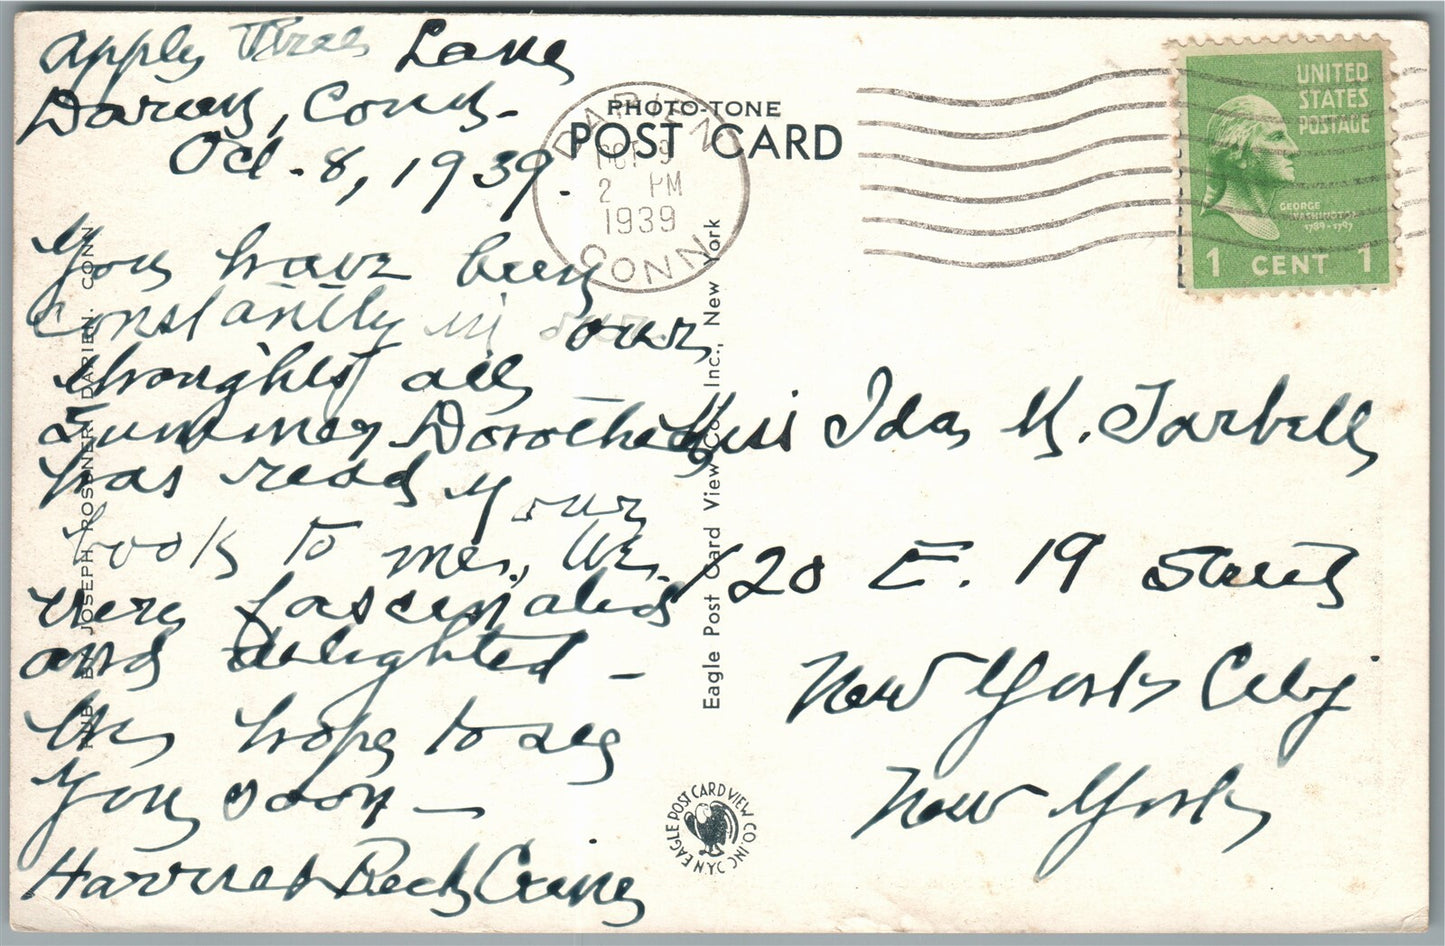 Apple Tree Lane
Darien, Conn.
Oct. 8, 1939.
You have been
constantly in our
thoughts all
summer Dorothea
has read your
book to me. We
were fascinated
and delighted –
We hope to see
you soon –
Harriet Beck
PHOTO-TONE
POST CARD
DARIEN
OCT 9
2 PM
1939
CONN
UNITED
STATES
POSTAGE
GEORGE
WASHINGTON
1789-1797
1 CENT 1
Miss Ida M. Tarbell
120 E. 19 Street
New York City
New York
PUB. BY JOSEPH ROSSNER, DARIEN, CONN.
Eagle Post Card View Co., Inc., New York
EAGLE POST CARD VIEW CO. INC. N.Y.C.